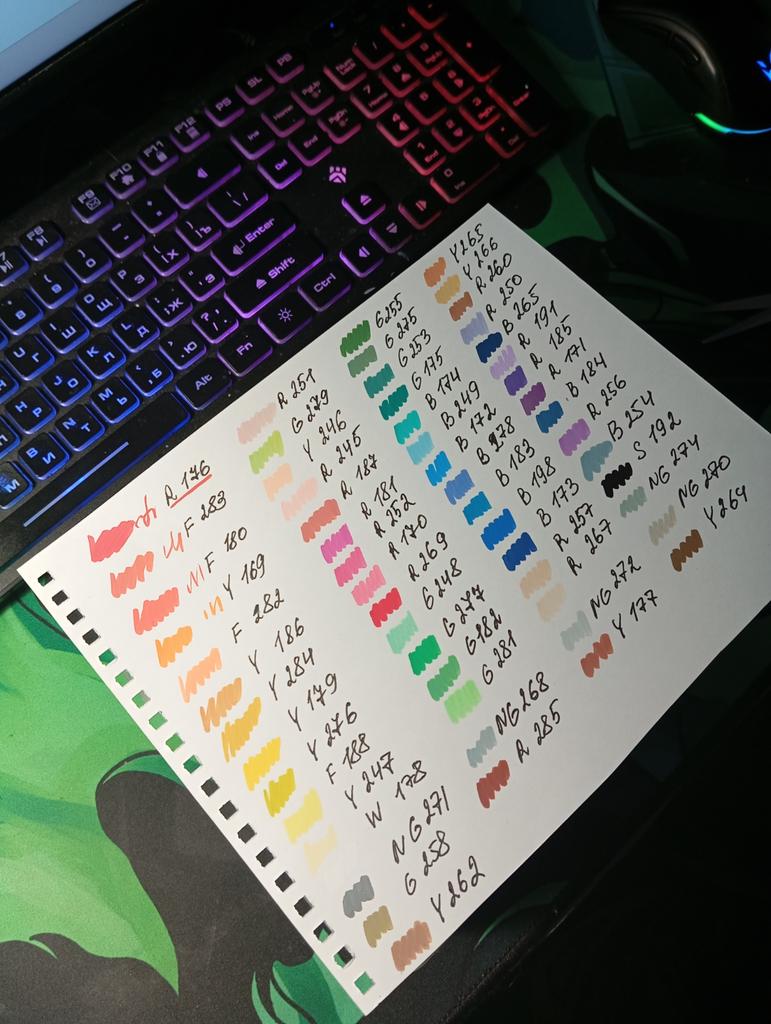 R 176
F 283
F 180
Y 169
F 282
Y 186
Y 284
Y 179
Y 276
F 188
Y 247
W 178
NG 271
G 258
Y 262
R 251
G 279
Y 246
R 245
R 187
R 181
R 252
R 170
R 269
G 248
G 277
G 282
G 281
NG 268
R 285
G 255
G 275
G 253
G 175
B 174
B 249
B 172
B 278
B 183
B 198
B 173
R 257
R 267
NG 272
Y 177
Y 265
Y 266
R 260
R 250
B 265
R 191
R 185
R 171
B 184
R 256
B 254
S 192
NG 274
NG 270
Y 264
F8
F9
F10
F11
F12
PS
SL
PB
Ins
Home
PgUp
Del
End
PgDn
Enter
Shift
Ctrl
Alt
Fn